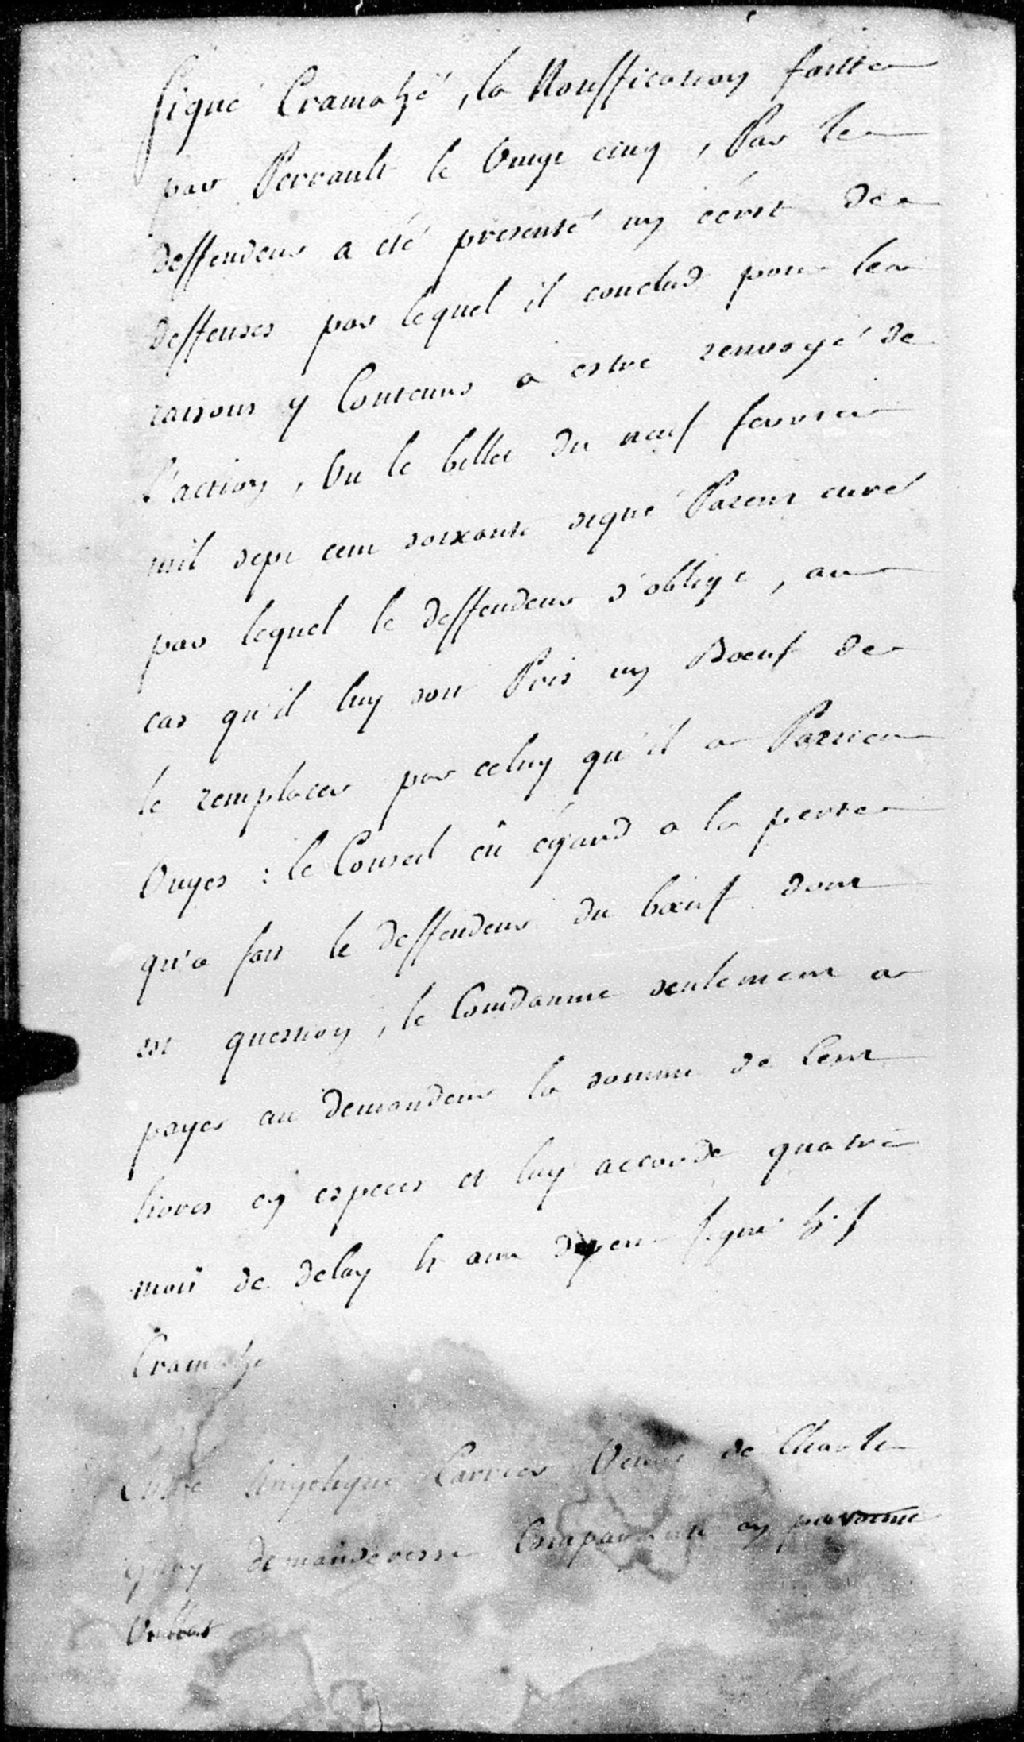 signé Cramahé, la Nottification faitte
par Perrault le Vingt cinq, Par le
deffendeur a été présenté un écrit de
deffenses par lequel il conclud pour les
raisons y Contenues a estre renvoyé de
l'action, Vu le billet du neuf fevrier
mil sept cent soixante signé Parent curé
par lequel le deffendeur s'oblige, au
cas qu'il luy soit Pris un Boeuf de
le remplacer par celuy qu'il a
: le Conseil eû égard a la perte
qu'a fait le deffendeur du boeuf dont
est question, le Condamne seulement a
payer au demandeur la somme de Cent
livres en especes et luy accorde quatre
mois de delay et aux depens signé
Cramahé
Entre Angelique Carrier Veuve de Charle
demanderesse Comparante en personne